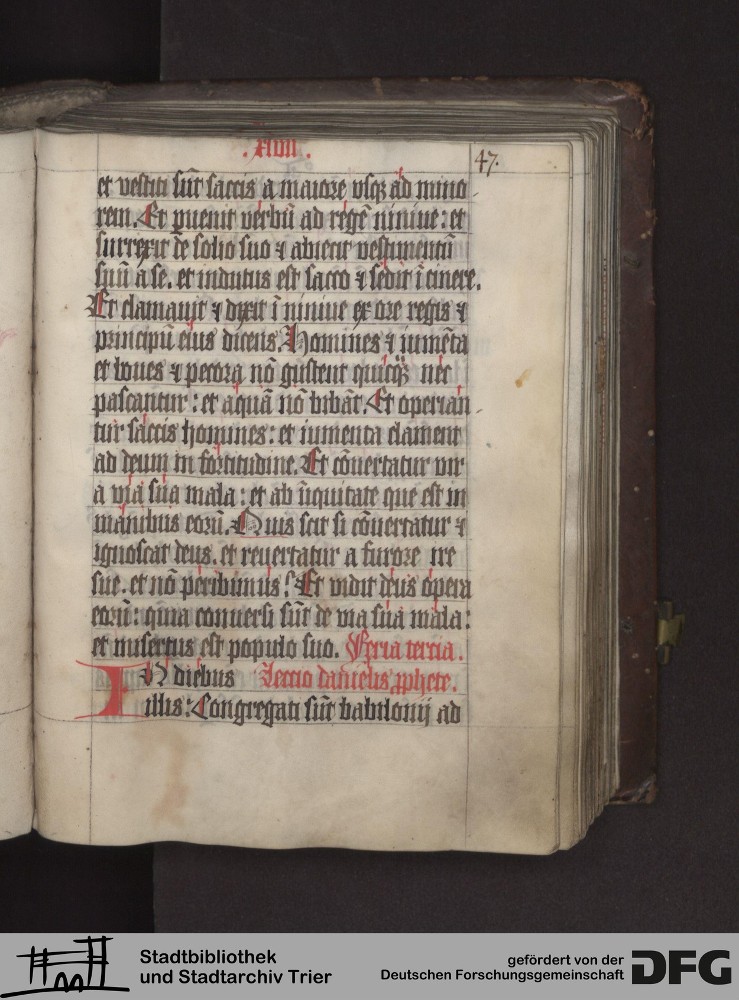 . xlvii .
47.
et vestiti sūt saccis a maiore vsqꝫ ad mino
rem. Et ꝑuenit verbū ad regē niniue: et
surrexit de solio suo ⁊ abiecit vestimentū
suū a se. et indutus est sacco ⁊ sedit ī cinere.
Et clamauit ⁊ dixit ī niniue ex ore regis ⁊
principū eius dicens. Homines ⁊ iumēta
et boues ⁊ pecora nō gustent quicqͣꝫ nec
pascantur: et aquā nō bibāt. Et operian
tur saccis homines: et iumenta clament
ad deum in fortitudine. Et cōuertatur vir
a via sua mala: et ab iniquitate que est in
manibus eorū. Quis scit si cōuertatur ⁊
ignoscat deus. et reuertatur a furore ire
sue. et nō peribimus? Et vidit deus opera
eorū: quia conuersi sūt de via sua mala:
et misertus est populo suo. Feria tercia.
IN diebus Lectio danielis ꝓphete.
illis: Congregati sūt babilonij ad
Stadtbibliothek
und Stadtarchiv Trier
gefördert von der
Deutschen Forschungsgemeinschaft
DFG